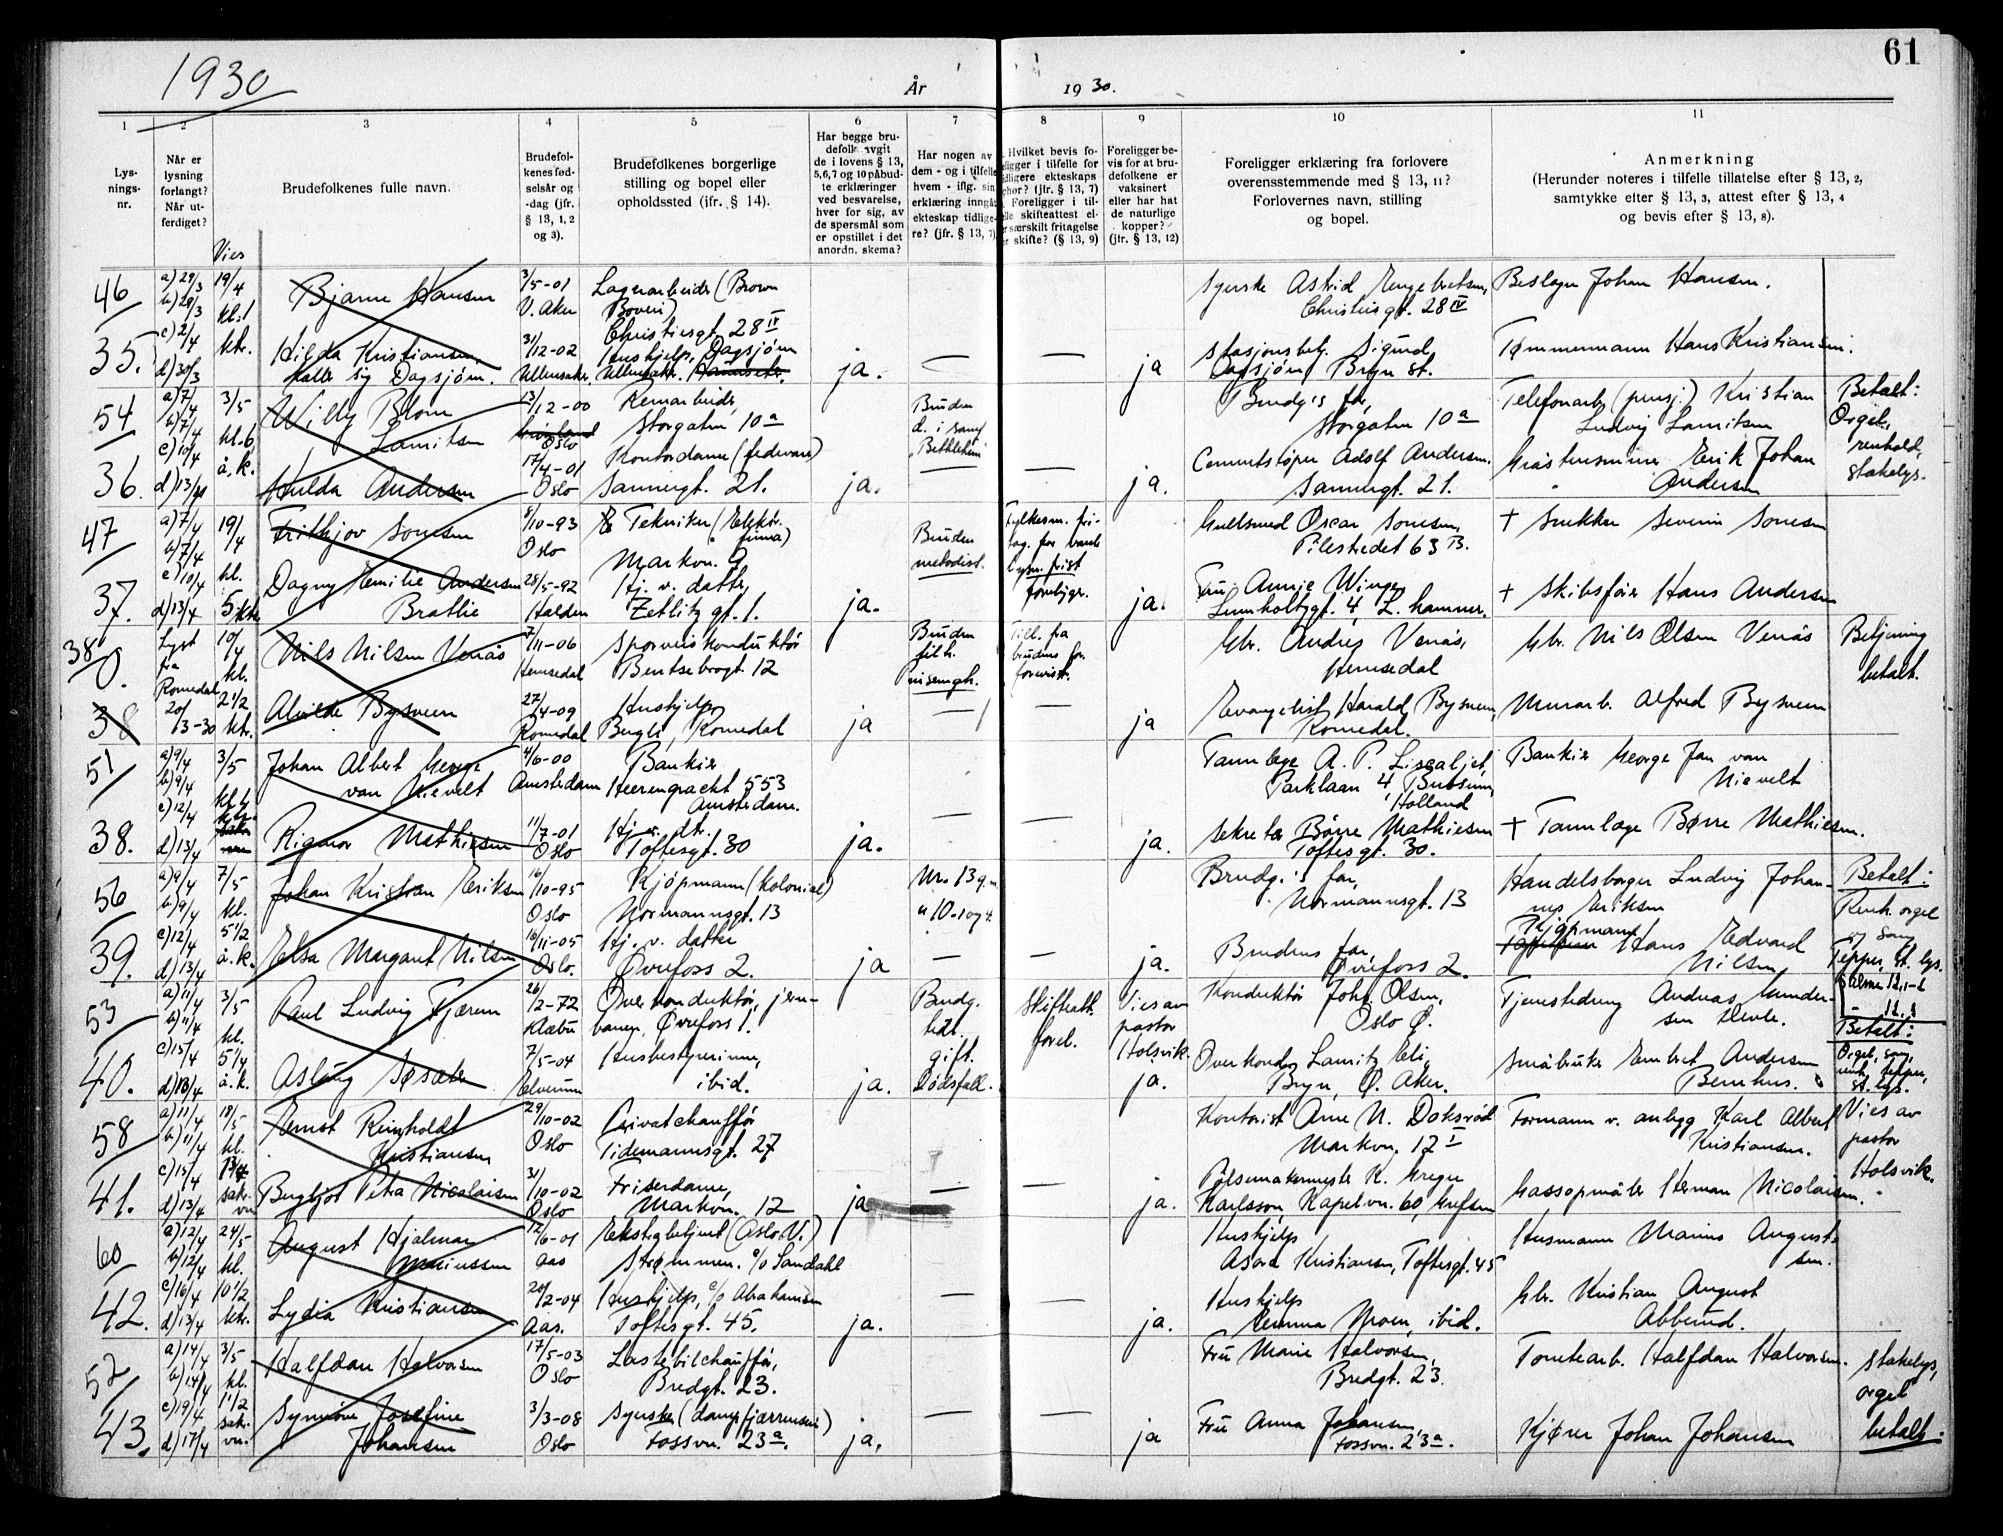 61
1930
År 1930.
1 2 3 4 5 6 7 8 9 10 11
Lys-
nings-
nr.
Når er
lysning
forlangt?
Når ut-
ferdiget?
Vies
Brudefolkenes fulle navn.
Brudefol-
kenes fød-
selsår og
-dag (jfr.
§ 13, 1, 2
og 3).
Brudefolkenes borgerlige
stilling og bopel eller
opholdssted (jfr. § 14).
Har begge bru-
defolk avgit
de i lovens § 13,
5,6,7 og 10 påbud-
te erklæringer
ved besvarelse,
hver for sig, av
de spørsmål som
er opstillet i det
anordn. skema?
Har nogen av
dem - og i tilfelle
hvem - iflg. sin
erklæring inngåt
ekteskap tidlige-
re? (jfr. § 13, 7)
Hvilket bevis fo-
religger i tilfelle for
tidligere ekteskaps
ophør? (jfr. § 13, 7)
Foreligger i til-
felle skifteattest el-
særskilt fritagelse
skifte? (§ 13, 9)
Foreligger be-
vis for at bru-
defolkene er
vaksinert
eller har hat
de naturlige
kopper?
(jfr. § 13, 12)
Foreligger erklæring fra forlovere
overensstemmende med § 13, 11?
Forlovernes navn, stilling
og bopel.
Anmerkning
(Herunder noteres i tilfelle tillatelse efter § 13, 2,
samtykke efter § 13, 3, attest efter § 13, 4
og bevis efter § 13, 8).
46 a) 29/3 19/4 Bjarne Hansen 3/5-01 Lagerarbeider (Brown Syerske Astrid Engebretsen, Beslager Johan Hansen.
b) 29/3 kl. 1 V. Aker Boveri) Christiesgt. 28 IV
c) 2/4 ktr. Christiesgt. 28 IV
35. d) 30/3 Hilda Kristiansen, 31/12-02 Hushjelp, Dagsjøm ja. — — ja Stasjonsbetj. Sigurd Tømmermann Hans Kristiansen.
kaller sig Dagsjøm. Ullensaker Ullensaker. Dagsjøm, Bryn st.
54 a) 7/4 3/5 Willy Blom 13/12-00 Remarbeider, Bruden Brudg's far, Telefonarb. (pensj.) Kristian Betalt:
b) 7/4 kl. 6 Lauritsen Oslo Storgaten 10 a d. i samf. Storgaten 10 a Ludvig Lauritsen Orgel,
c) 10/4 å.k. 17/4-01 Kontordame (fedevare) "Bethlehem" Cementstøper Adolf Andersen. Gråstensminer Erik Johan renhold,
36. d) 13/4 Hulda Andersen Oslo Sannergt. 21. ja. — ja. Sannergt. 21. Andersen stakelys.
47 a) 7/4 19/4 Frithjov Sonesen 8/10-93 Tekniker (Elektr. firma) Bruden Gullsmed Oscar Sonesen, † Snekker Severin Sonesen
b) 7/4 kl. Oslo Markvn. 9 metodist. Pilestredet 63 B.
c) 10/4 5 Dagny Emilie Andersen 28/5-92 Hj. v. datter, Fru Annie Winge,
37. d) 13/4 ktr. Brattie Halden Zetlitz gt. 1. ja. foreligger. ja. Lumholtzgt. 4, L. hammer. † Skibsfører Hans Andersen
38 Lyst 10/4 Nils Nilsen Venås 7/11-06 Sporveiskonduktør Bruden Till. fra Gbr. Andres Venås, Gbr. Nils Olsen Venås Betjening
0. fra kl. Hemsedal Bentsebrogt. 12 tilh. brudens for. Hemsedal betalt.
Romedal 2 1/2 misemgh.
38 20/3-30 ktr. Alvilde Bysveen 27/4-09 Hushjelp, ja — — ja Evangelist Harald Bysveen, Murarb. Alfred Bysveen
Romedal Romedal Romedal.
51 a) 9/4 3/5 Johan Albert George 4/6-00 Bankier Tannlege A. P. Bankier George Jan van
b) 9/4 van Nievelt Amsterdam Heerengracht 553 Parklaan 4, Bussum, Nievelt
c) 12/4 Amsterdam. Holland
38. d) 13/4 Rigmor Mathiesen 11/7-01 Hj. v. dtr. ja. — — ja. Sekretær Børre Mathiesen † Tannlæge Børre Mathiesen.
Oslo Toftesgt. 30 Toftesgt. 30.
56 a) 9/4 7/5 Johan Kristian Eriksen 16/10-95 Kjøpmann (kolonial) Nr. 13 Brudg.'s far, Handelsborger Ludvig Johan- Betalt:
b) 9/4 kl. Oslo Normannsgt. 13 " 10. Normannsgt. 13 nes Eriksen Renh. orgel
c) 12/4 5 1/2 16/11-05 Hj. v. datter Kjøpmann og sang
39. d) 13/4 å.k. Elsa Margaret Nilsen Oslo. Øvrefoss 2. ja — — ja. Brudens far, Hans Edvard Tepper, st. lys.
Øvrefoss 2. Nilsen
53 a) 11/4 3/5 Paul Ludvig Fjærem 26/2-72 Overkonduktør, jern- Brudg. Skifteatt. Vies av Konduktør Joh. Olsen, Tjenestedreng Andreas Gunder- Salme
b) 11/4 kl. Klæbu banen. Øvrefoss 1. tidl. forel. pastor Oslo Ø. sen
c) 15/4 5 1/4 7/5-04 Husbestyrerinne, gift. Holsvik. Overkond. Lauritz Eli, Småbruker Embret Andersen Betalt:
40. d) 13/4 å.k. Aslaug Søsæter Elverum ibid. ja. Dødsfall. ja. Bryn, Ø. Aker. Bernhus. Orgel, sang, renh. tepper, st. lys.
58 a) 11/4 18/5 Ernst Reinholdt 29/10-02 Privatchauffør Kontorist Arne N. Doksrød Formann v. anlegg Karl Albert Vies av
b) 11/4 kl. Kristiansen Oslo Tidemannsgt. 27 Markvn. 12 I Kristiansen. pastor
c) 15/4 31/10-02 Friserdame, Pølsemakermester K. Holsvik.
41. d) 13/4 sakr. Bergljot Petra Nicolaisen Oslo Markvn. 12 ja — — ja. Karlsson, Kapelvn. 60, Grefsen Gassopmåler Herman Nicolaisen.
60 a) 12/4 24/5 August Hjalmar 12/6-01 Ekstrabetjent (Oslo V.) Hushjelp Husmann Marius August-
b) 12/4 kl. Mariussen Aas Strømmen. c/o Sandahl Asora Kristiansen, Toftesgt. 45 sen.
c) 16/4 10 1/2 20/12-04 Hushjelp, c/o Abrahamsen Hushjelp Gbr. Kristian August
42. d) 13/4 ktr. Lydia Kristiansen Aas. Toftesgt. 45. ja. — — ja. Emma Moen, ibid. Abberud.
52 a) 14/4 3/5 Halfdan Halvorsen 17/5-03 Lastebilchauffør, Fru Marie Halvorsen, Tomtearb. Halfdan Halvorsen. Stakelys,
b) 14/4 kl. Oslo Bredgt. 23. Bredgt. 23. orgel
c) 19/4 1 1/2 Synnøve Josefine 3/3-08 Syerske (dampfjærrenseri) — — Fru Anna Johansen, betalt.
43. d) 17/4 sakr. Johansen Oslo Fossvn. 23 a. ja. ja Fossvn. 23 a. Kjører Johan Johansen